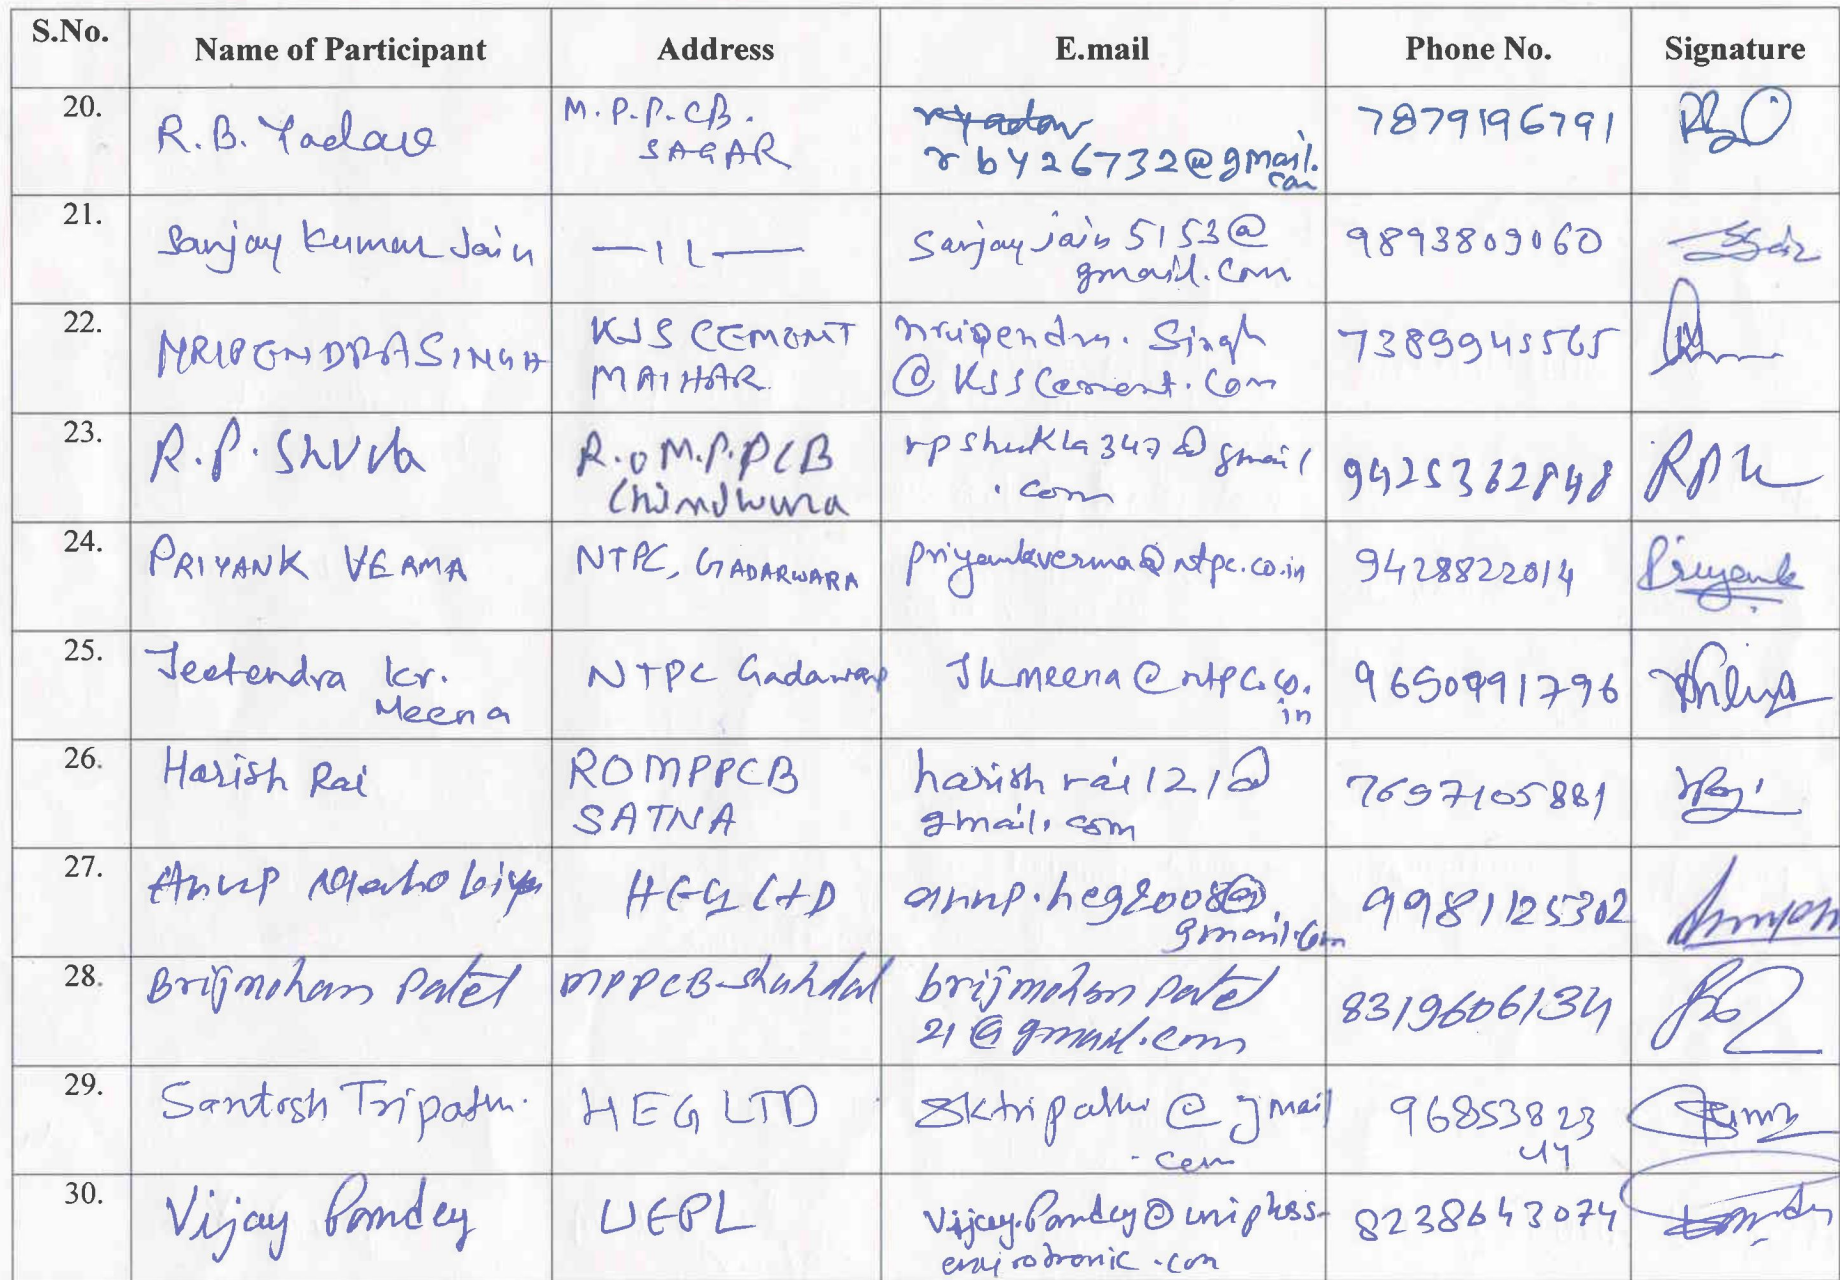 S.No. Name of Participant Address E.mail Phone No. Signature
20. R.B. Yadav M.P.P.CB. SAGAR rby26732@gmail.com 7879196791
21. Sanjay Kumar Jain —11— Sanjayjain5153@gmail.com 9893809060
22. NRIPENDRA SINGH KJS CEMENT MAIHAR nripendra.Singh@KJSCement.Com 7389945565
23. R.P. Shukla R.O M.P.PCB Chindwara rpshukla347@gmail.com 9425362848
24. PRIYANK VERMA NTPC, GADARWARA priyankverma@ntpc.co.in 9428822014 Priyank
25. Jeetendra Kr. Meena NTPC Gadarwara Jkmeena@ntpc.co.in 9650991796
26. Harish Rai ROMPPCB SATNA harishrai121@gmail.com 7697105881
27. Anup Mahobiya HEG LTD anup.heg2008@gmail.com 9981125302
28. Brijmohan Patel MPPCB-Shahdal brijmohanpatel21@gmail.com 8319606134
29. Santosh Tripathi HEG LTD Sktripathi@gmail.com 9685382344
30. Vijay Pandey UEPL Vijay.Pandey@uniphos-envirotronic.com 8238643074